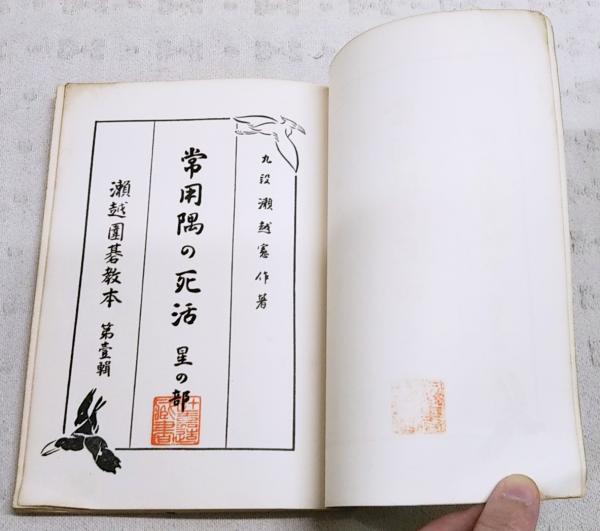 九段 瀬越憲作著
常用隅の死活 星の部
瀬越圍碁教本 第壹輯